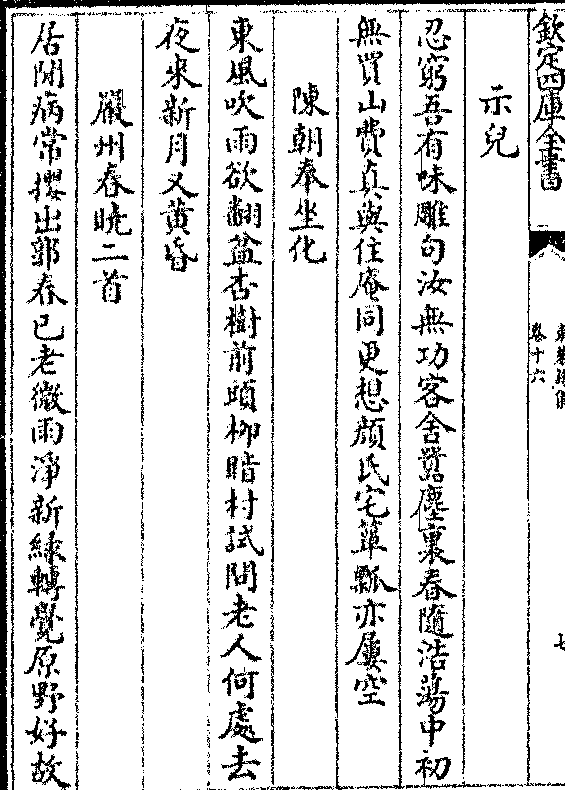 欽定四庫全書
卷十六
七
示兒
忍窮吾有味雕句汝無功客舍囂塵裏春隨浩蕩中初
無買山費真與住庵同更想顔氏宅簞瓢亦屢空
陳朝奉坐化
東風吹雨欲翻盆杏樹前頭柳暗村試問老人何處去
夜來新月又黄昏
嚴州春曉二首
居閒病常攖出郭春已老微雨淨新綠轉覺原野好故